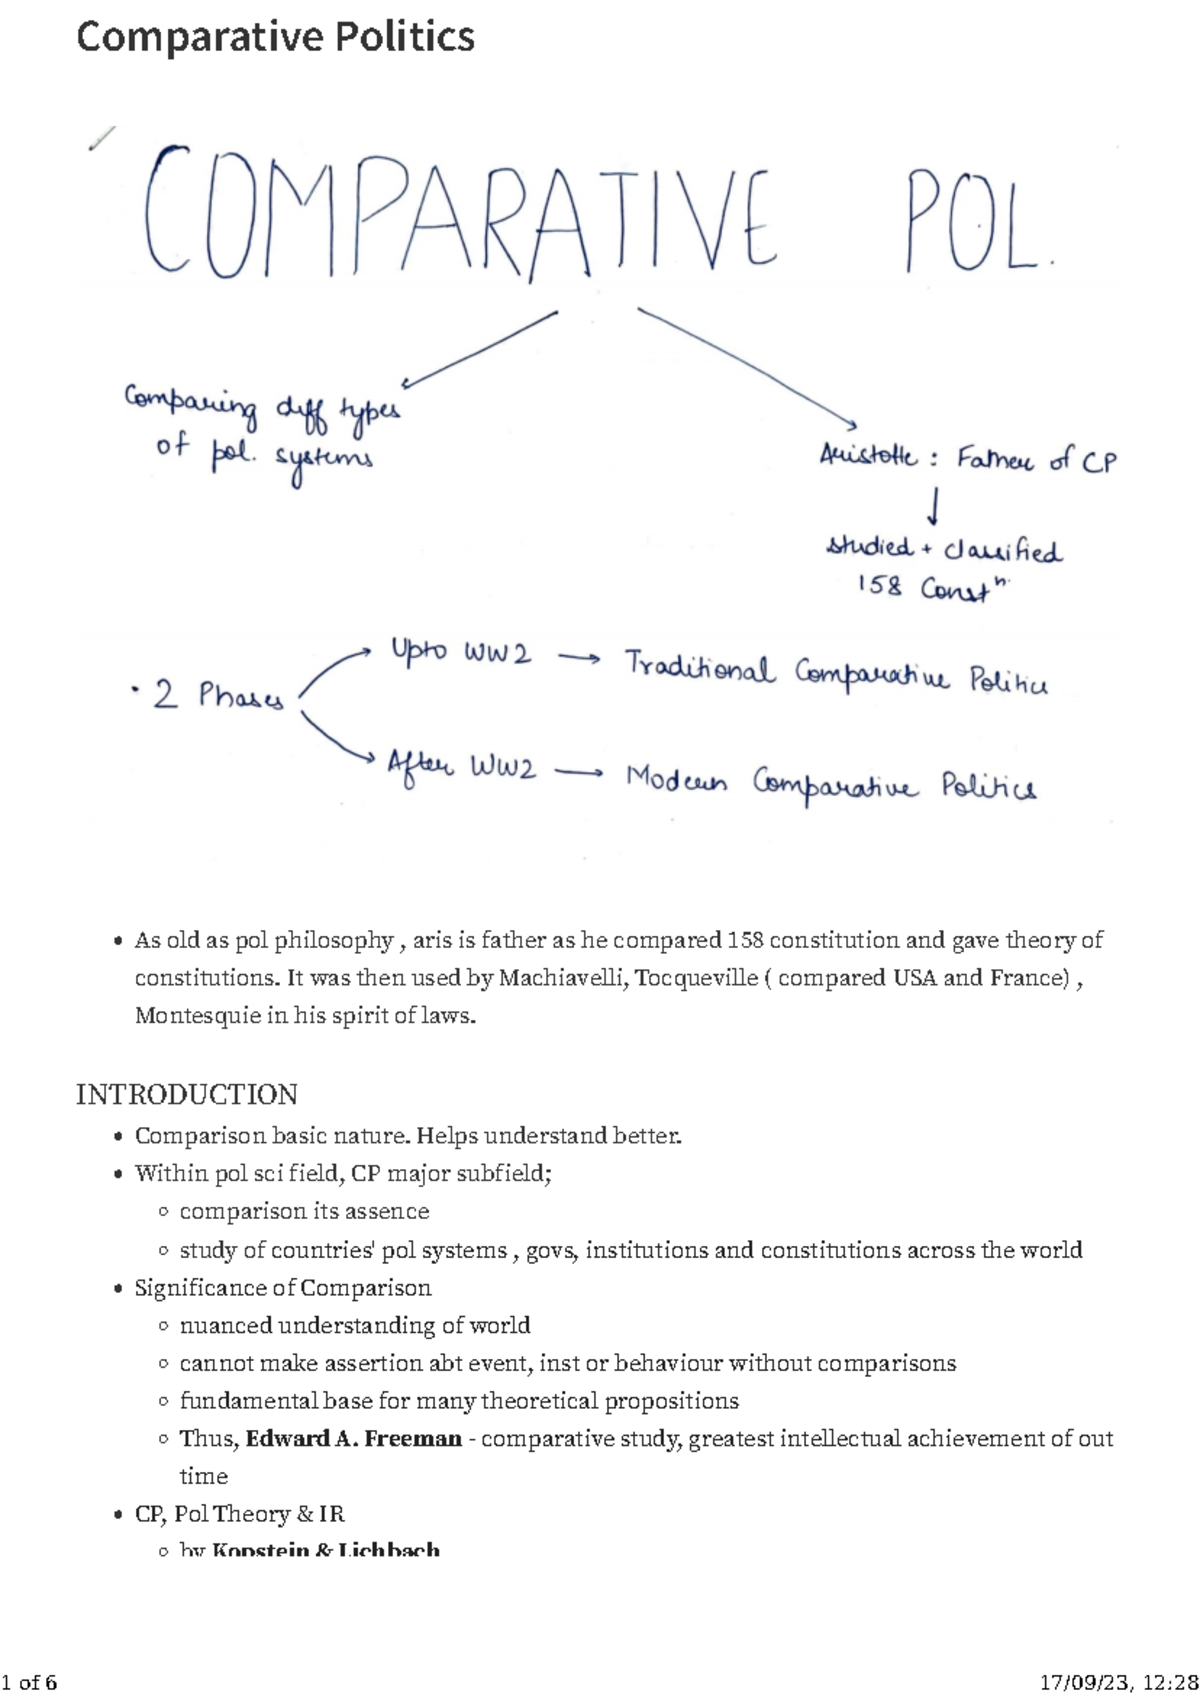 Comparative Politics
COMPARATIVE POL.
Comparing diff types
of pol. systems
Aristotle : Father of CP
studied + classified
158 Constn.
Upto WW2 → Traditional Comparative Politics
· 2 Phases
After WW2 → Modern Comparative Politics
• As old as pol philosophy , aris is father as he compared 158 constitution and gave theory of
constitutions. It was then used by Machiavelli, Tocqueville ( compared USA and France) ,
Montesquie in his spirit of laws.
INTRODUCTION
• Comparison basic nature. Helps understand better.
• Within pol sci field, CP major subfield;
◦ comparison its assence
◦ study of countries' pol systems , govs, institutions and constitutions across the world
• Significance of Comparison
◦ nuanced understanding of world
◦ cannot make assertion abt event, inst or behaviour without comparisons
◦ fundamental base for many theoretical propositions
◦ Thus, Edward A. Freeman - comparative study, greatest intellectual achievement of out
time
• CP, Pol Theory & IR
◦ by Kopstein & Lichbach
1 of 6
17/09/23, 12:28